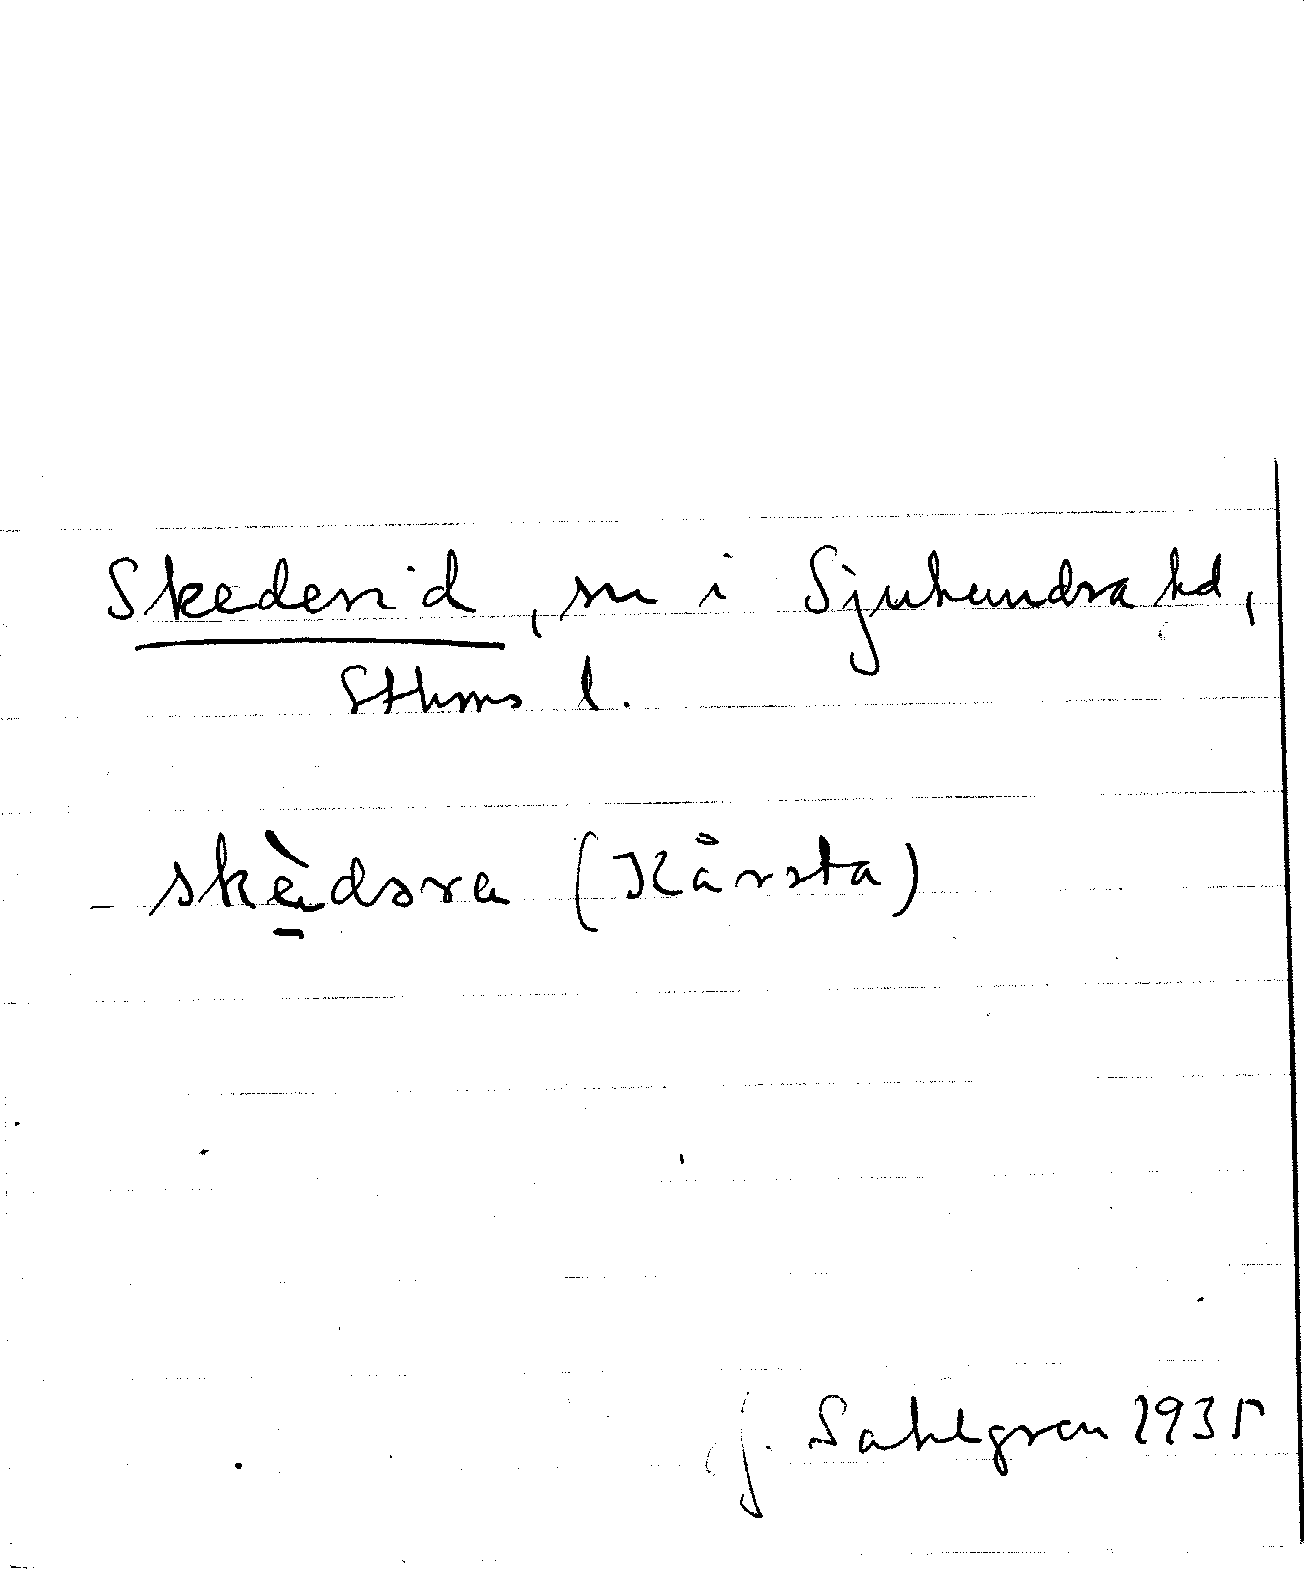 Skederid, sn i Sjuhundra hd,
Sthms l.
skè̱dsra (Kårsta)
J. Sahlgren 1935